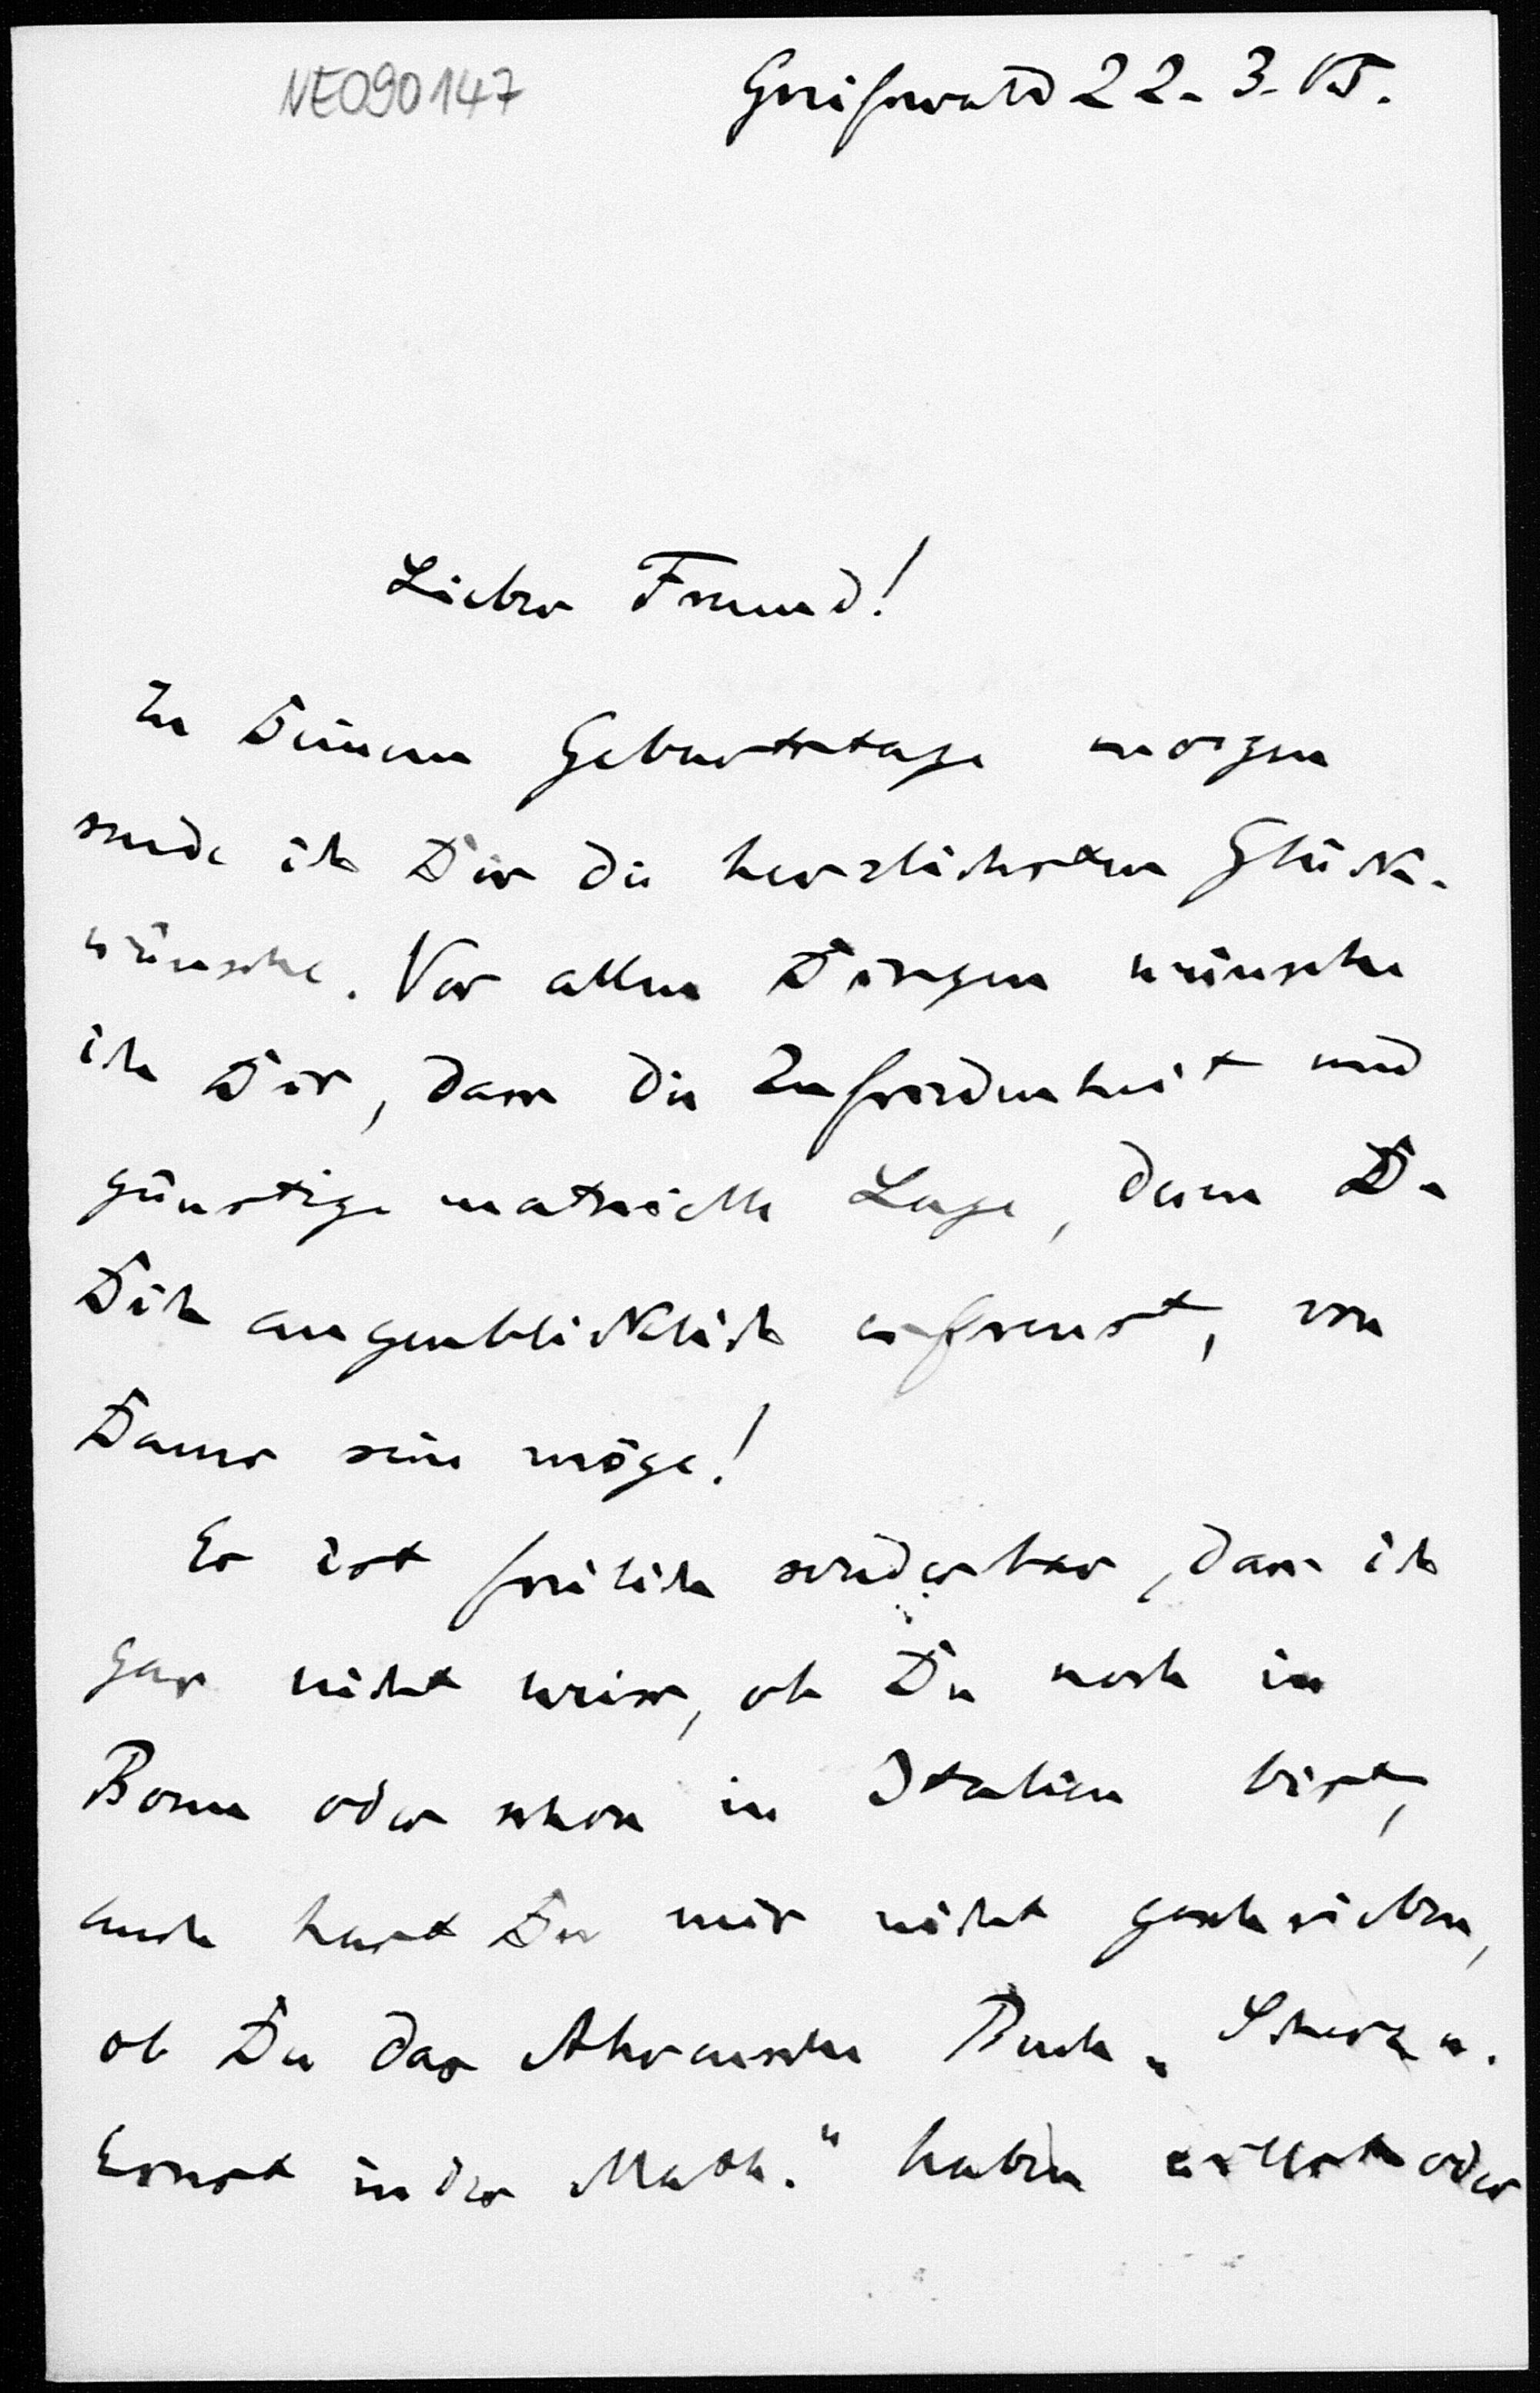 NE090147
Greifswald 22. 3. 05.
Lieber Freund!
Zu Deinem Geburtstage morgen
sende ich Dir die herzlichsten Glück-
wünsche. Vor allen Dingen wünsche
ich Dir, dass die Zufriedenheit und
günstige materielle Lage, deren Du
Dich augenblicklich erfreust, von
Dauer sein möge!
Es ist freilich sonderbar, dass ich
gar nicht weiss, ob Du noch in
Bonn oder schon in Italien bist,
auch hast Du mir nicht geschrieben,
ob Du das Ahrenssche Buch „Scherz u.
Ernst in der Math." haben willst oder